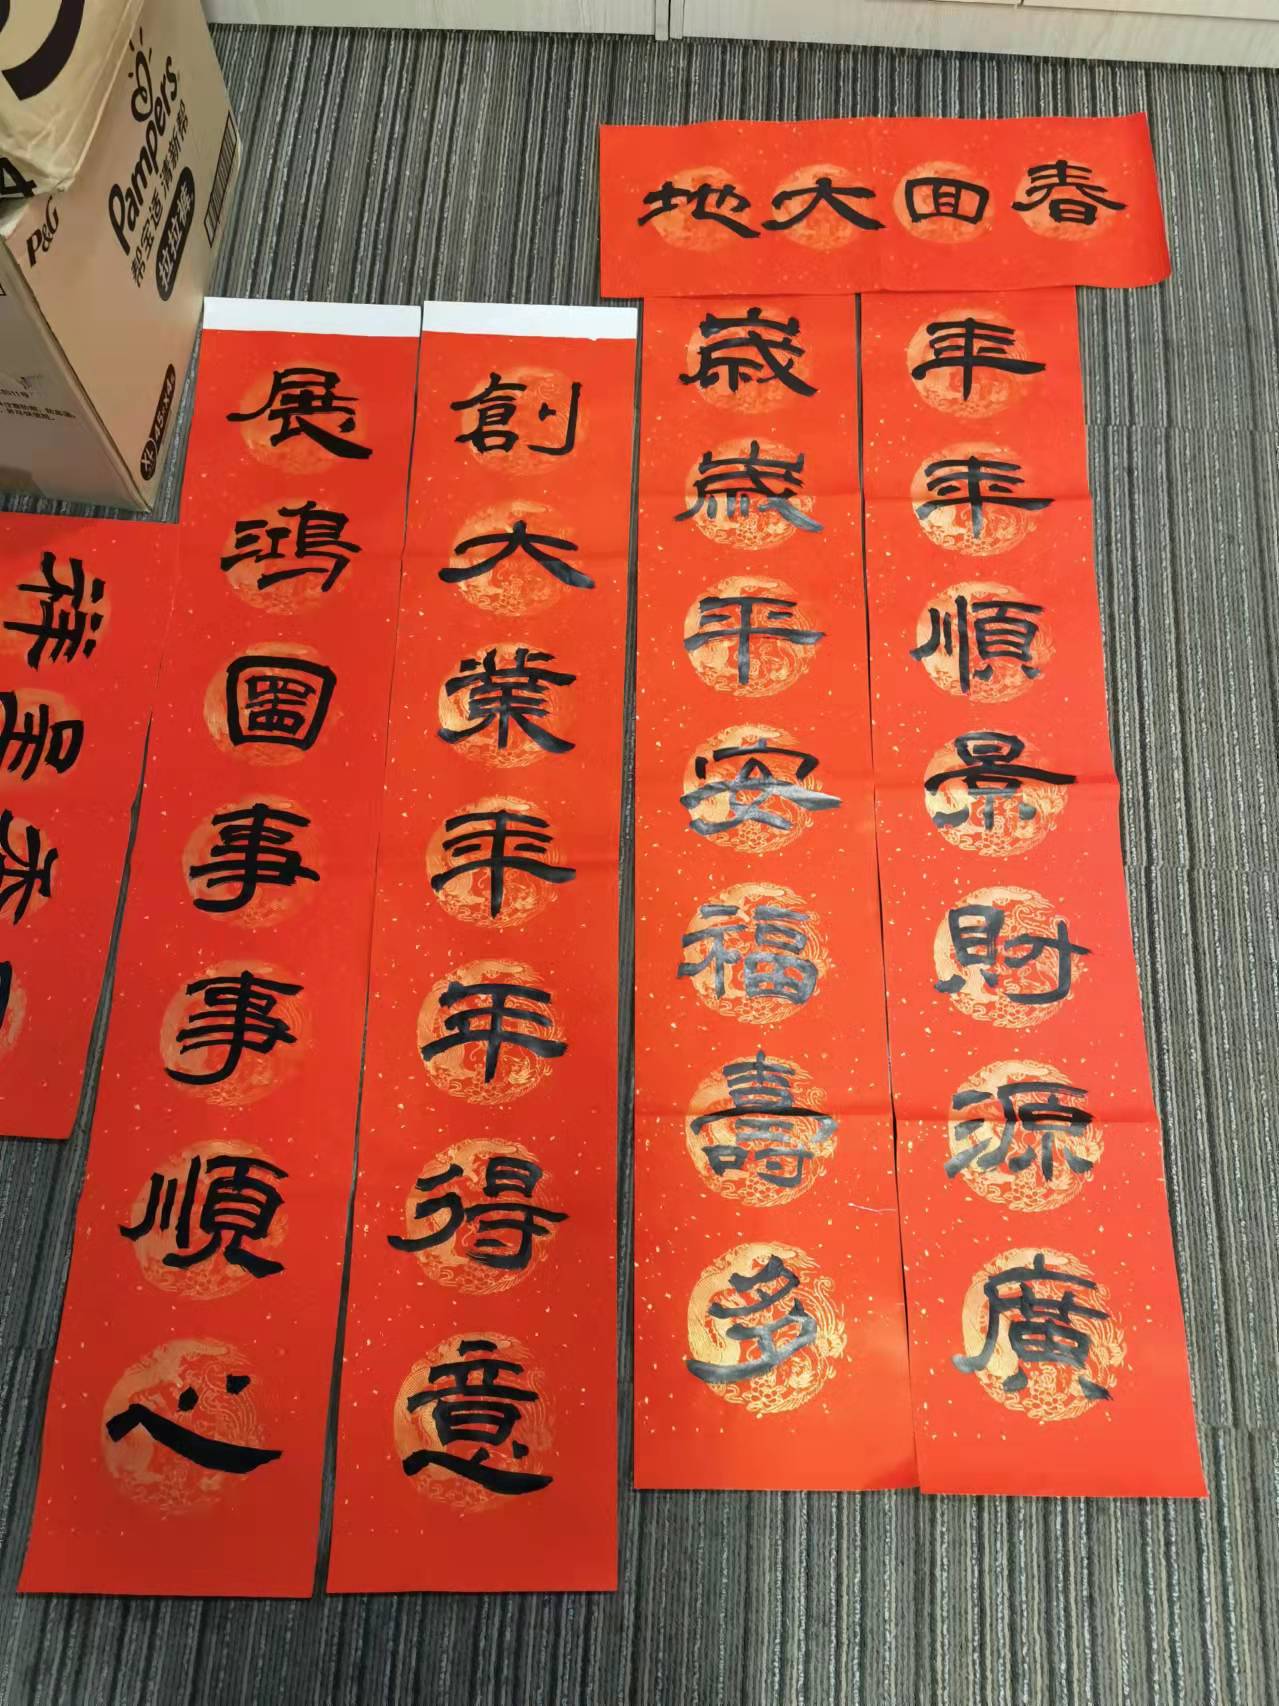 春回大地
年年順景財源廣
歲歲平安福壽多
創大業年年得意
展鴻圖事事順心
祥呈
Pampers
帮宝适 清新帮
拉拉裤
P&G
XL
4